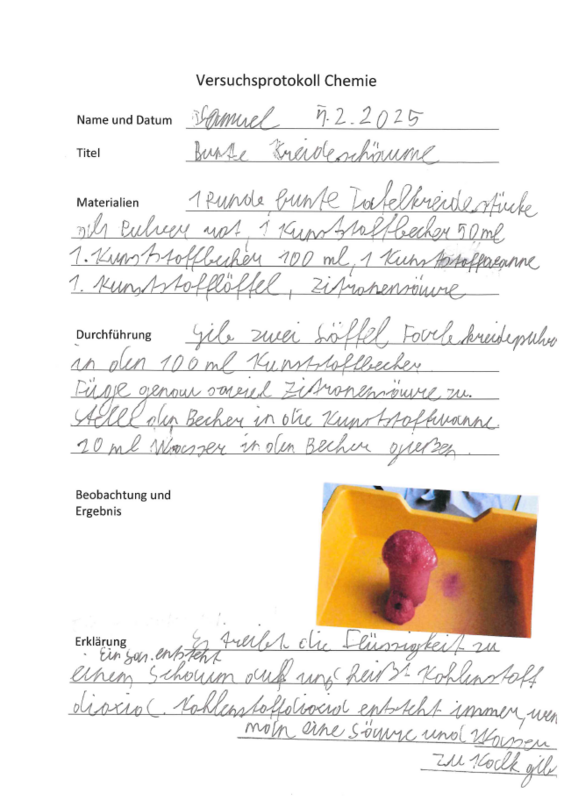 Versuchsprotokoll Chemie
Name und Datum Samuel 7.2.2025
Titel Bunte Kreideschäume
Materialien 1 Runde bunte Tafelkreidestücke
als Pulver rot, 1 Kunststoffbecher 50ml
1. Kunststoffbecher 100 ml, 1 Kunststoffwanne
1. Kunststofflöffel, Zitronensäure
Durchführung Gib zwei Löffel Farbkreidepulve
in den 100 ml Kunststoffbecher
Füge genau soviel Zitronensäure zu.
Stelle den Becher in die Kunststoffwanne.
20 ml Wasser in den Becher gießen.
Beobachtung und
Ergebnis
Erklärung Es treibt die Flüssigkeit zu
Ein Gas entsteht
einem Schaum auf und heißt Kohlenstoff
dioxid. Kohlenstoffdioxid entsteht immer, wen
man eine Säure und Wasser
zu Kalk gib